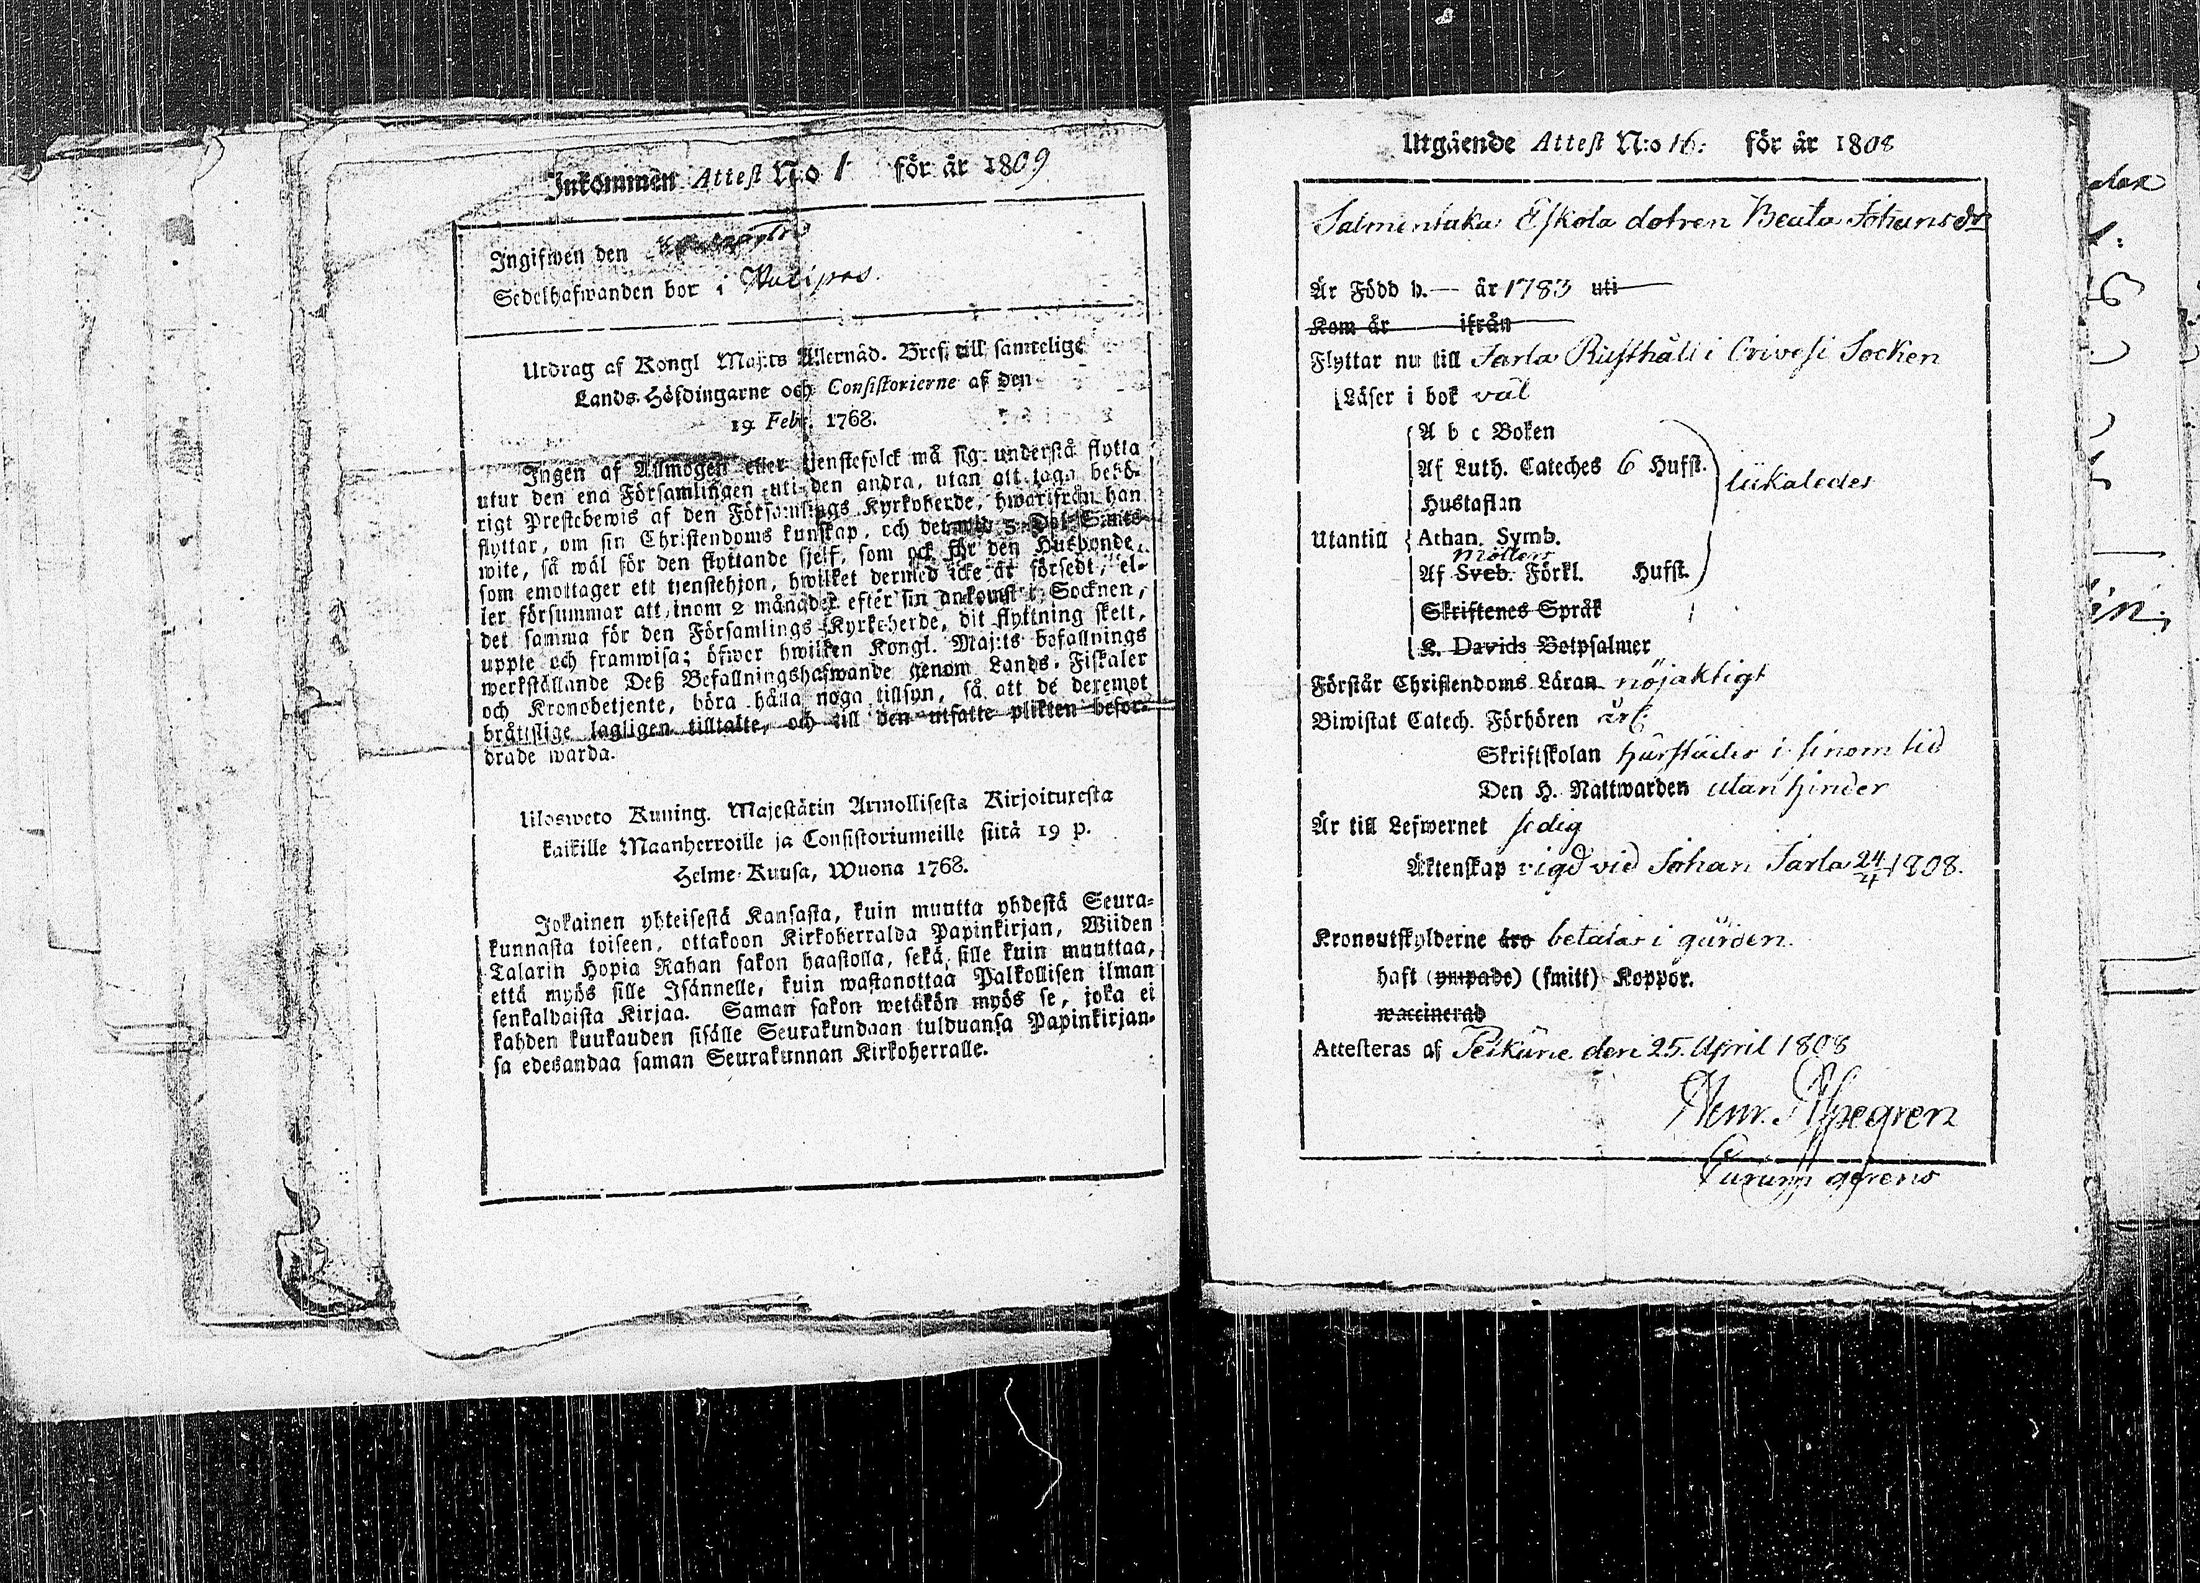 Inkommen Attest N:o 1 för år 1809
Ingifwen den
Sedelhafwanden bor i
Utdrag af Kongl Maj:ts Allernåd. Bref till samtelige
Lands-Höfdingarne och Consistorierne af den
19 Febr. 1768.
Ingen af Allmogen eller tjenstefolck må sig understå flytta
utur den ena Församlingen uti den andra, utan att taga behö-
rigt Prestebewis af den Församlings Kyrkoherde, hwarifrån han
flyttar, om sin Christendoms kunskap, och det wid 5 Dal. S:mts
wite, så wäl för den flyttande sjelf, som ock för den Husbonde,
som emottager ett tjenstehjon, hwilket dermed icke är försedt, el-
ler försummar att inom 2 månader efter sin ankomst i Socknen,
det samma för den Församlings Kyrkoherde, dit flyttning skett,
uppte och framwisa; öfwer hwilken Kongl. Maj:ts befallnings
werkställande Deß Befallningshafwande genom Lands-Fiskaler
och Kronobetjente, böra hålla noga tillsyn, så att de deremot
bråttslige lagligen tilltalte, och till den utsatte plikten befor-
drade warda.
Ulosweto Kuning. Majestätin Armollisesta Kirjoituxesta
kaikille Maanherroille ja Consistoriumeille siitä 19 p.
Helme-Kuusa, Wuona 1768.
Jokainen yhteisestä Kansasta, kuin muutta yhdestä Seura-
kunnasta toiseen, ottakoon Kirkoherralda Papinkirjan, Wiiden
Talarin Hopia Rahan sakon haastolla, sekä sille kuin muuttaa,
että myös sille Isännelle, kuin wastanottaa Palkollisen ilman
senkaldaista Kirjaa. Saman sakon wetäkön myös se, joka ei
kahden kuukauden sisälle Seurakundaan tulduansa Papinkirjan-
sa edesandaa saman Seurakunnan Kirkoherralle.
Utgående Attest N:o 16: för år 1808
Salmentaka Eskola dotren Beata Johansdr
Är Född d. — år 1783 uti
Kom år ifrån
Flyttar nu till Jarla Rusthåll i Orivesi Socken
Läser i bok väl
A b c Boken
Af Luth. Cateches 6 Hufst.
likaledes
Hustaflan
Utantill Athan. Symb.
Möllers
Af Sveb. Förkl. Hufst.
Skriftenes Språk
K. Davids Botpsalmer
Förstår Christendoms Läran nöjaktigt
Biwistat Catech. Förhören årl:
Skriftskolan härstädes i sinom tid
Den H. Nattwarden utan hinder
Är till Lefwernet sedig
Äktenskap vigd vid Johan Jarla 24/4 1808.
Kronoutskylderne äro betalas i gården.
haft (ympade) (smitt) Koppor.
waccinerad
Attesteras af Teiskune den 25. April 1808
Henr. Aspegren
Curam gerens